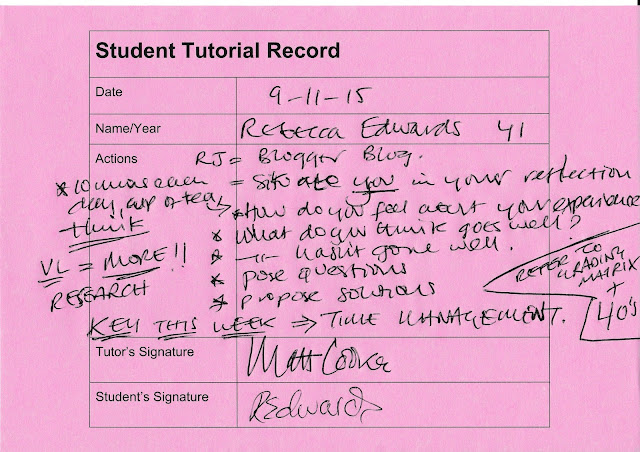 Student Tutorial Record
Date 9-11-15
Name/Year Rebecca Edwards Y1
Actions RJ = Blogger Blog.
= Situate you in your reflection
* 10 mins each day, cup of tea, think
* How do you feel about your experience
* What do you think goes well?
* -"- hasn't gone well.
* pose questions
* propose solutions
VL = MORE!!
RESEARCH
REFER TO GRADING MATRIX + 40's
KEY THIS WEEK => TIME MANAGEMENT.
Tutor's Signature Matt Cooke
Student's Signature REdwards